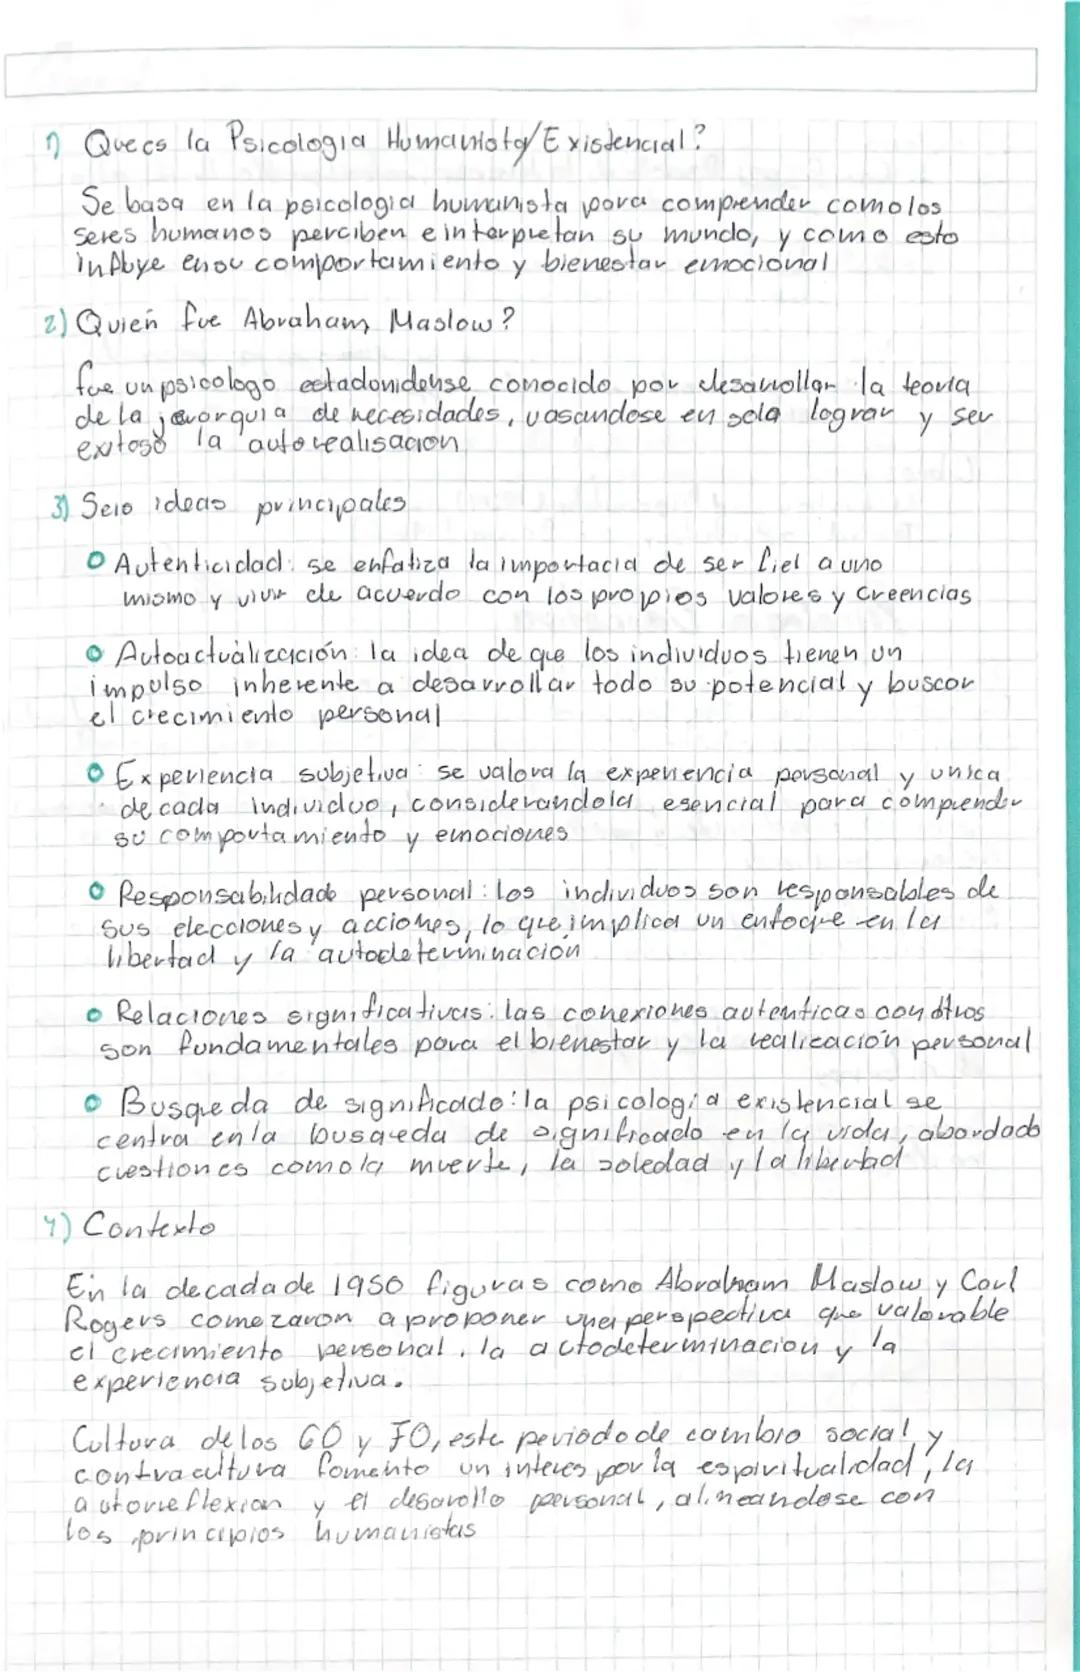 1) Que es la Psicologia Humanista/Existencial?
Se basa en la psicologia humanista para comprender como los
seres humanos perciben e interpretan su mundo, y como esto
influye en su comportamiento y bienestar emocional
2) Quien fue Abraham Maslow?
fue un psicologo estadonidense conocido por desarrollar la teoria
de la jerarquia de necesidades, vasandose en sola lograr y ser
exitoso la autorealisacion
3) Seis ideas principales
Autenticidad: se enfatiza la importacia de ser fiel a uno
mismo y vivir de acuerdo con los propios valores y creencias
Autoactualización: la idea de que los individuos tienen un
impulso inherente a desarrollar todo su potencial y buscar
el crecimiento personal
Experiencia subjetiva: se valora la experiencia personal y unica
de cada individuo, considerandola esencial para comprender
su comportamiento y emociones
Responsabilidad personal: los individuos son responsables de
sus elecciones y acciones, lo que implica un enfoque en la
libertad y la autodeterminación
Relaciones significativas: las conexiones autenticas con otros
son fundamentales para el bienestar y la realización personal
Busqueda de significado: la psicologia existencial se
centra en la busqueda de significado en la vida, abordado
cuestiones como la muerte, la soledad y la libertad
4) Contexto
En la decada de 1950 figuras como Abraham Maslow y Carl
Rogers comezaron a proponer una perspectiva que valorable
el crecimiento personal, la actodeterminacion y la
experiencia subjetiva.
Cultura de los 60 y 70, este periodo de cambio social y
contracultura fomento un interes por la espiritualidad, la
autoreflexion y el desarollo personal, alineandose con
los principios humanistas